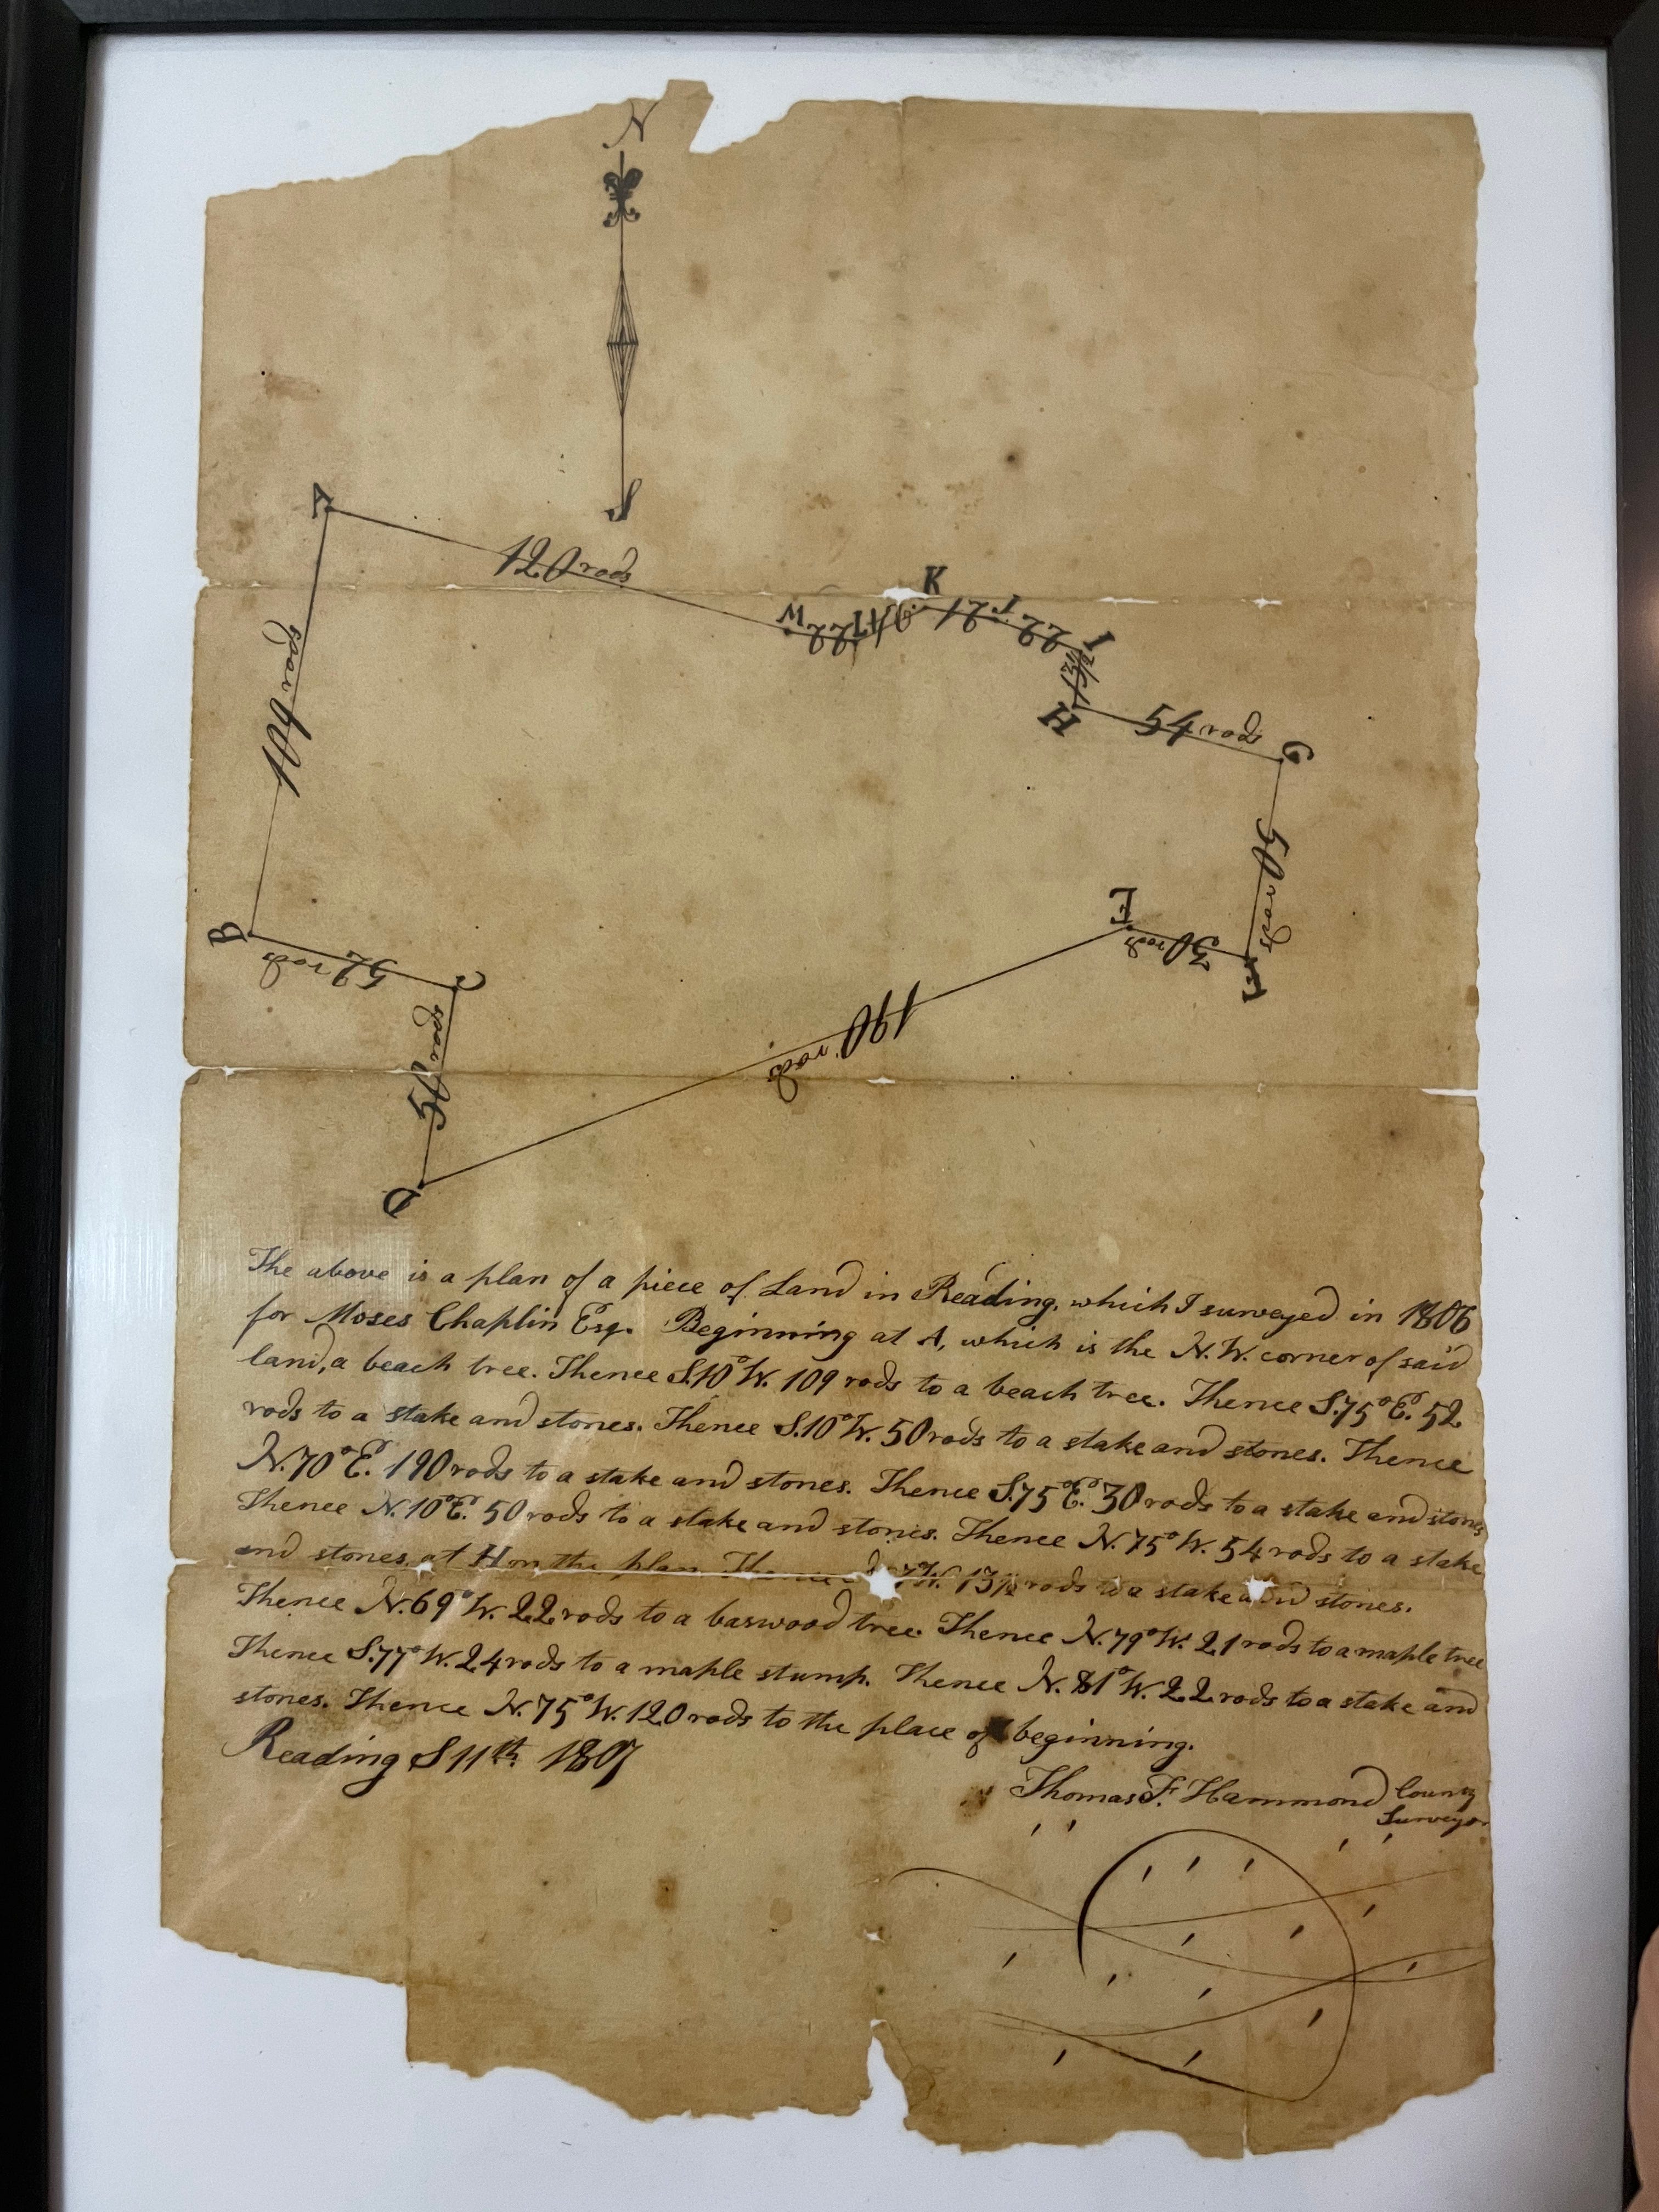 N
S
A
120 rods
K
M
22
L
24
21
I
22
I
13 1/2
H
54 rods
G
109 rods
50 rods
B
52 rods
C
E
30 rods
F
190 rods
50 rods
D
The above is a plan of a piece of Land in Reading, which I surveyed in 1806
for Moses Chaplin Esq. Beginning at A, which is the N.W. corner of said
land, a beach tree. Thence S.10°W. 109 rods to a beach tree. Thence S.75°E. 52
rods to a stake and stones. Thence S.10°W. 50 rods to a stake and stones. Thence
N.70°E. 190 rods to a stake and stones. Thence S.75°E. 30 rods to a stake and stones
Thence N.10°E. 50 rods to a stake and stones. Thence N.75°W. 54 rods to a stake
and stones at H on the plan Thence W. 13 1/2 rods to a stake and stones.
Thence N.69°W. 22 rods to a basswood tree. Thence N.79°W. 21 rods to a maple tree
Thence S.77°W. 24 rods to a maple stump. Thence N.81°W. 22 rods to a stake and
stones. Thence N.75°W. 120 rods to the place of beginning.
Reading S 11th 1807
Thomas F. Hammond County
Surveyor